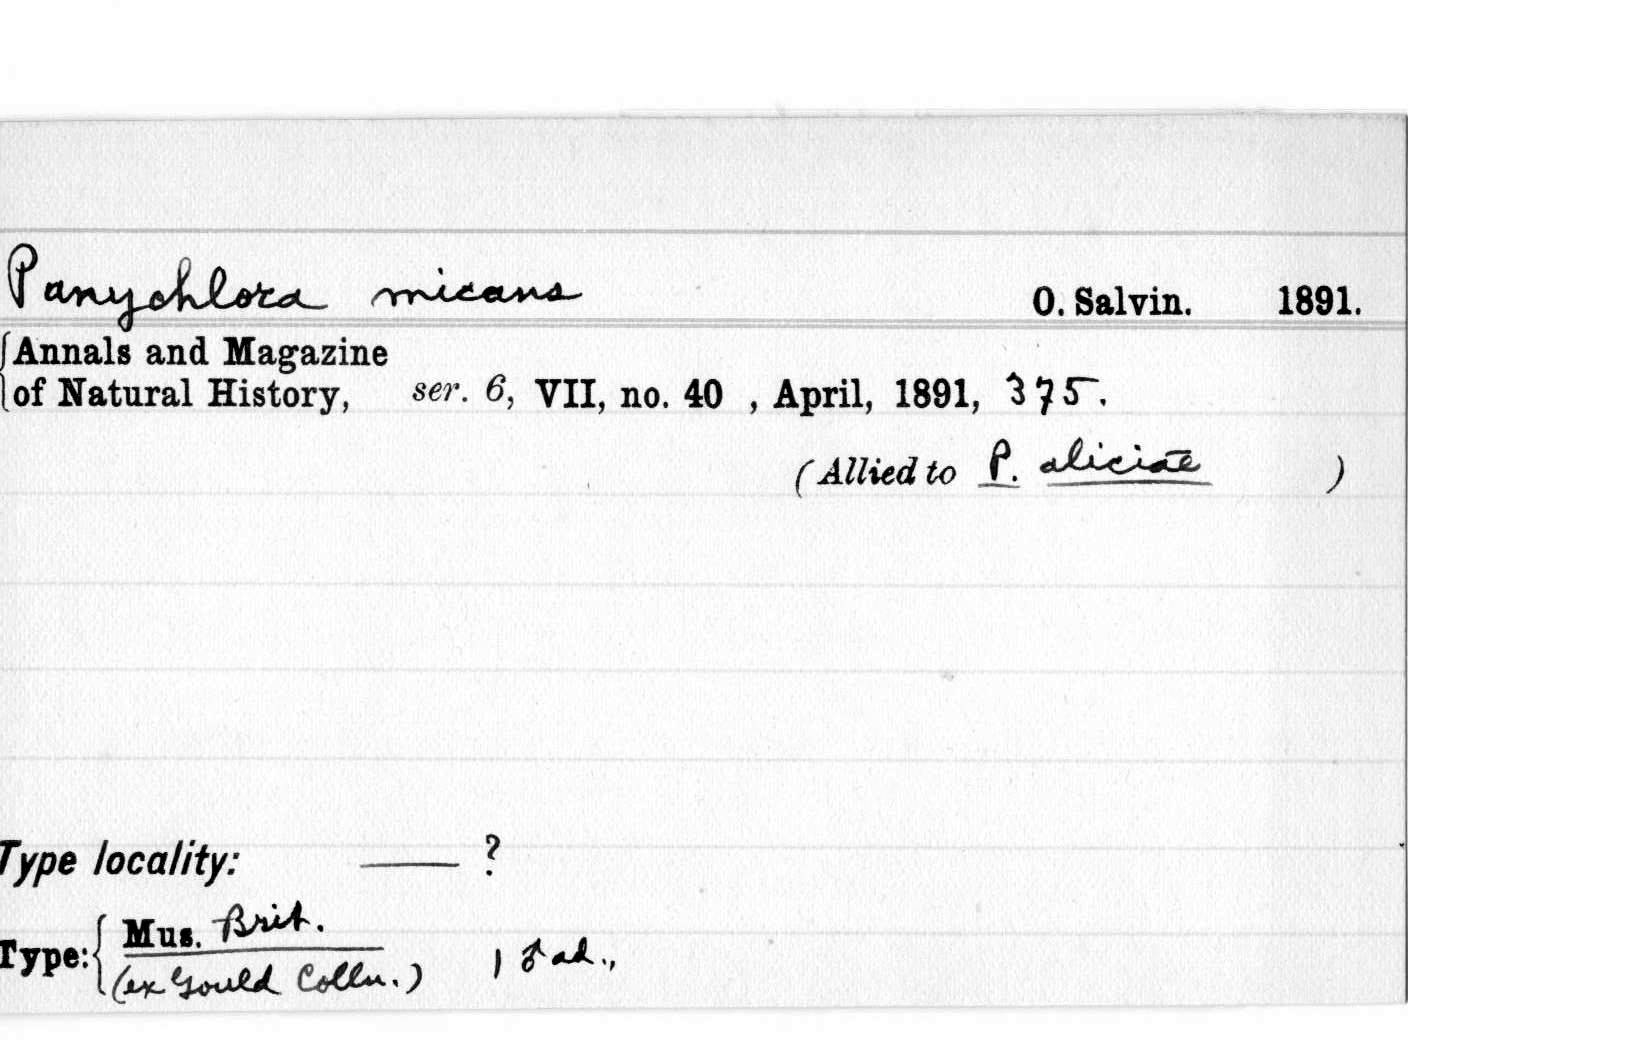 Panychlora micans O. Salvin. 1891.
{Annals and Magazine
of Natural History, ser. 6, VII, no. 40 , April, 1891, 375.
(Allied to P. aliciae )
Type locality: —— ?
Type: { Mus. Brit.
(ex Gould Colln.) 1 ♂ ad.,